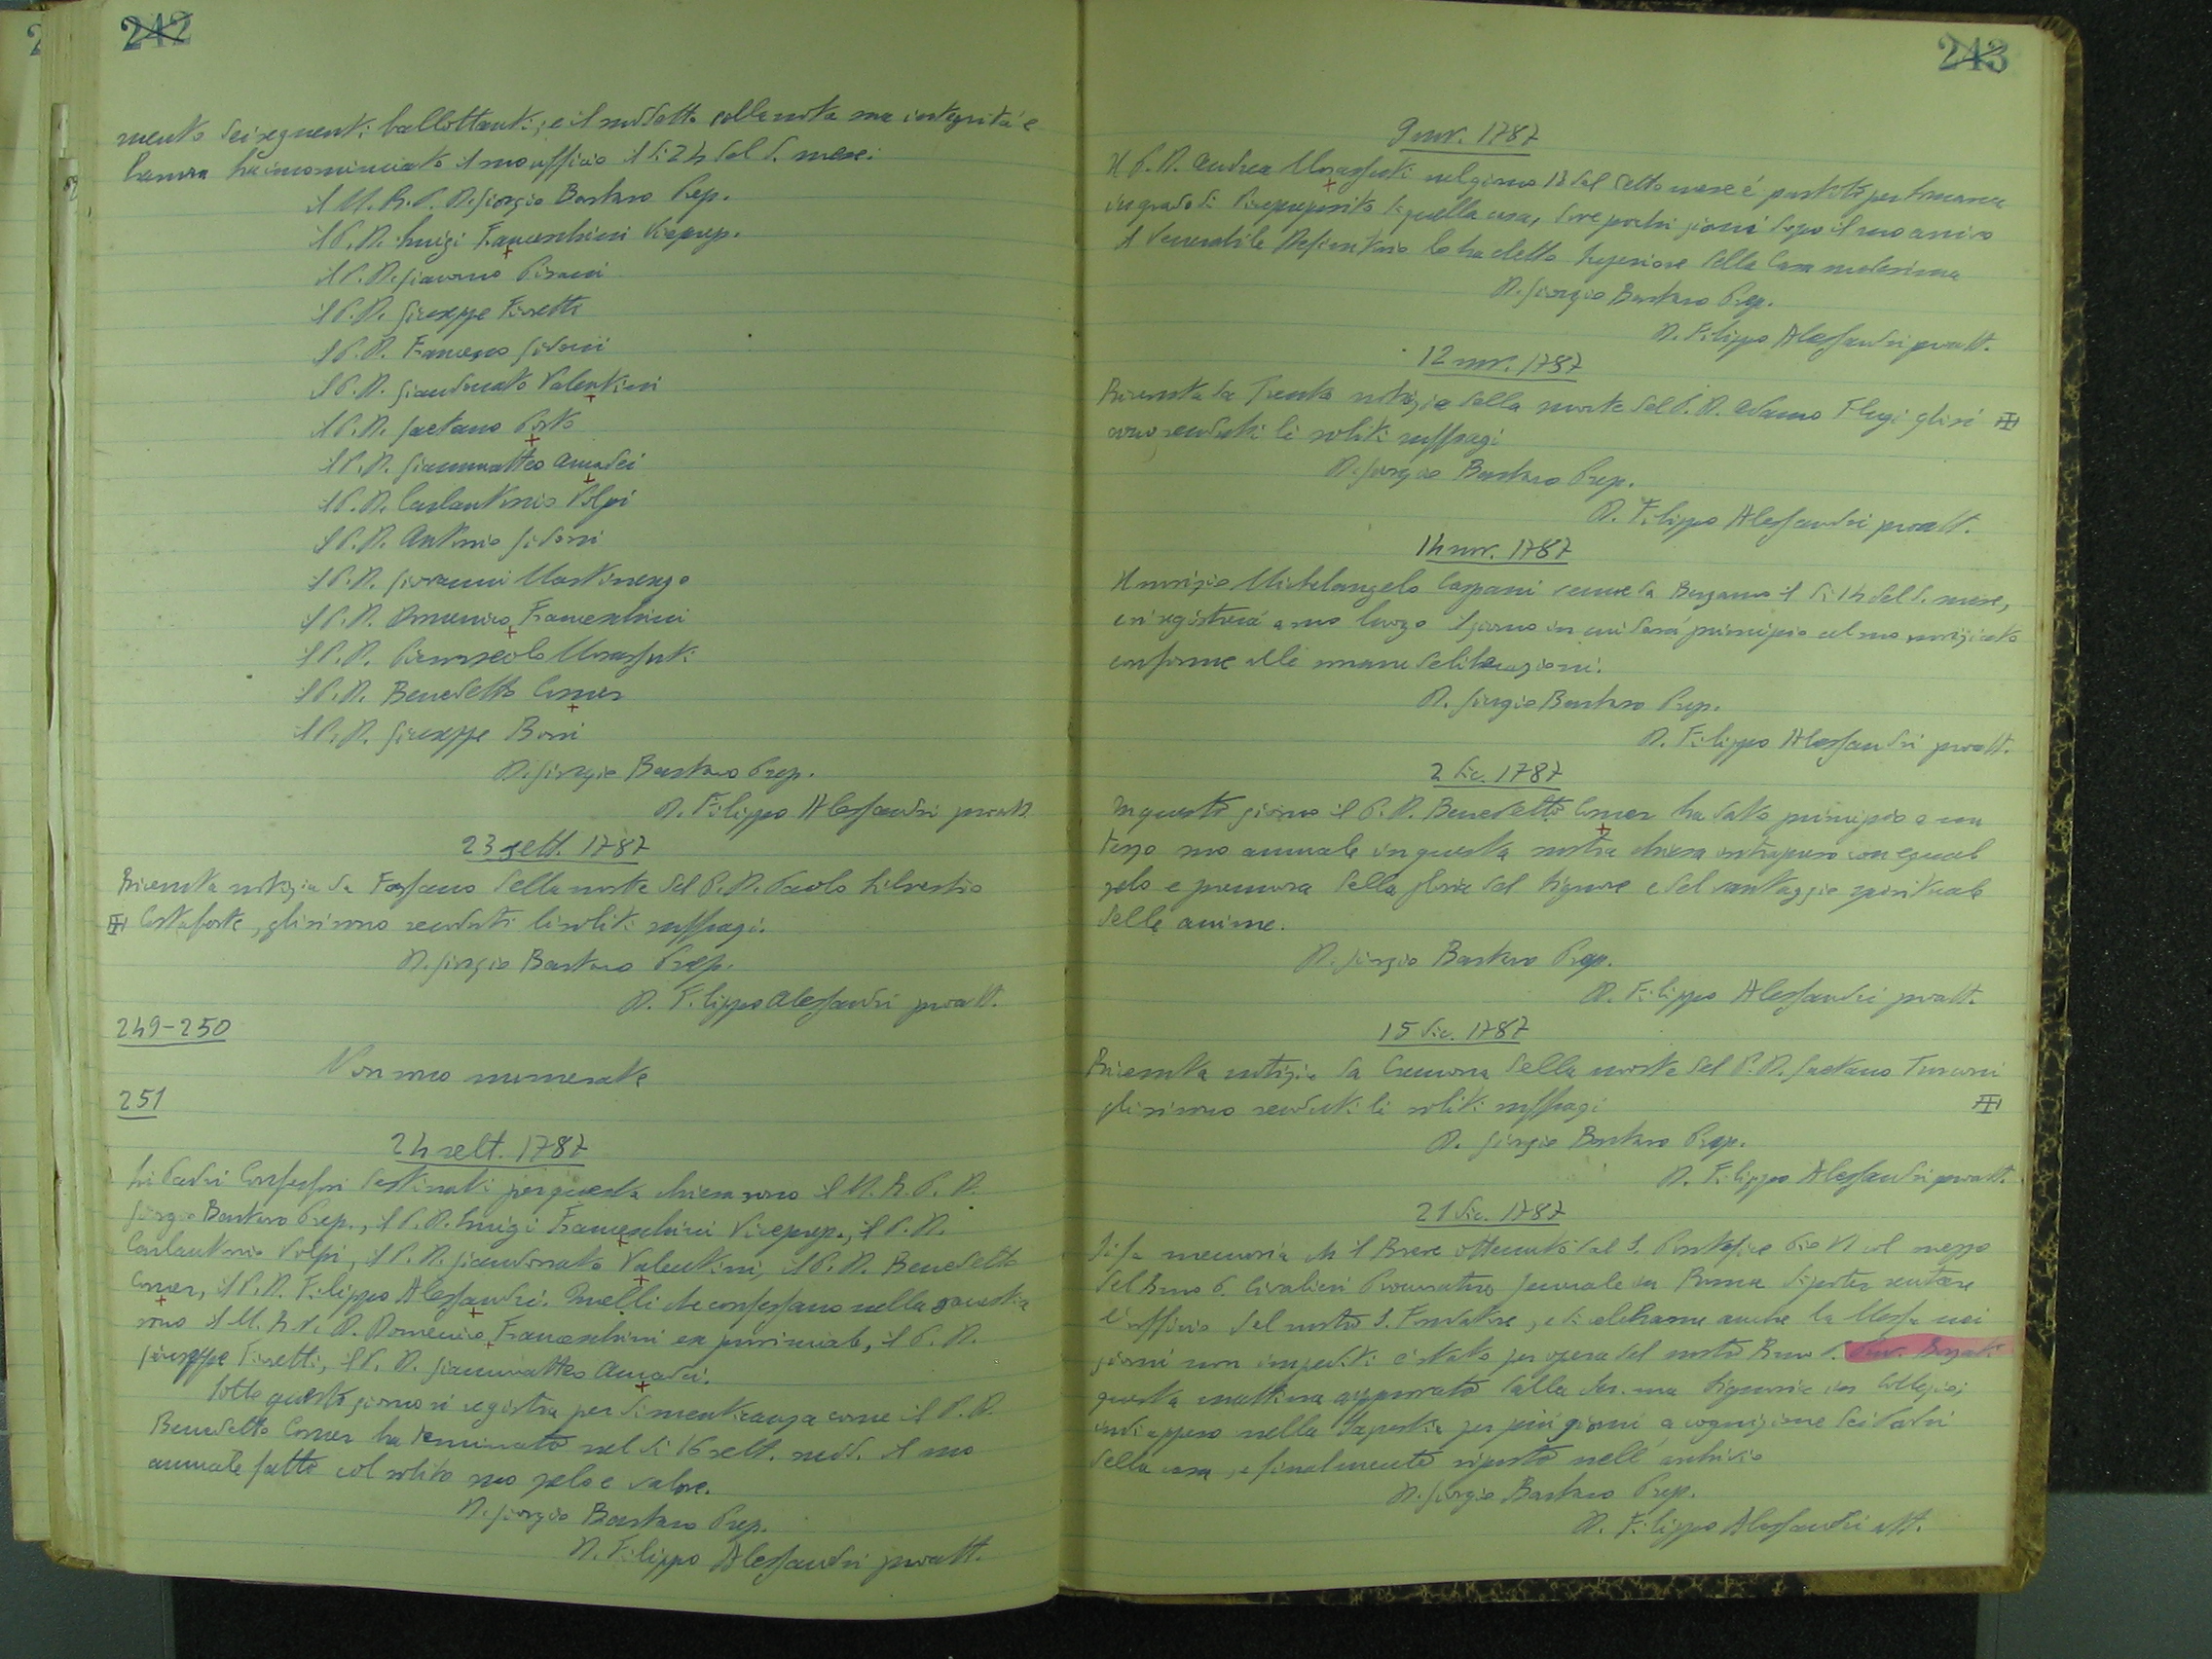 242
mento dei seguenti ballottanti; e il suddetto colla nota sua integrità e
bravura ha incominciato il suo ufficio il dì 24 del d. mese:
il M. R. P. D. Giorgio Barbaro Prep.
il P. D. Luigi Franceschini Viceprep.
il P. D. Giacomo Pisani
il P. D. Giuseppe Fioretti
il P. D. Francesco Gidoni
il P. D. Giandonato Valentini
il P. D. Gaetano Porto
il P. D. Giammatteo Amadei
il P. D. Carlantonio Volpi
il P. D. Antonio Gidoni
il P. D. Giovanni Martinengo
il P. D. Domenico Franceschini
il P. D. Pierorseolo Morassuti
il P. D. Benedetto Corner
il P. D. Giuseppe Boni
D. Giorgio Barbaro Prep.
D. Filippo Alessandri proatt.
23 sett. 1787
Ricevuta notizia da Fossano della morte del P. D. Paolo Silvestro
Costaforte, gli si sono renduti li soliti suffragi.
D. Giorgio Barbaro Prep.
D. Filippo Alessandri proatt.
249-250
Non sono numerate
251
24 sett. 1787
Li Padri Confessori destinati per questa chiesa sono il M. R. P. D.
Giorgio Barbaro Prep., il P. D. Luigi Franceschini Viceprep., il P. D.
Carlantonio Volpi, il P. D. Giandonato Valentini, il P. D. Benedetto
Corner, il P. D. Filippo Alessandri. Quelli che confessano nella sacrestia
sono il M. R. P. D. Domenico Franceschini ex provinciale, il P. D.
Giuseppe Fioretti, il P. D. Giammatteo Amadei.
Sotto questo giorno si registra per dimenticanza come il P. D.
Benedetto Corner ha terminato nel dì 16 sett. sudd. il suo
annuale fatto col solito suo zelo e valore.
D. Giorgio Barbaro Prep.
D. Filippo Alessandri proatt.
243
9 nov. 1787
Il P. D. Andrea Morassuti nel giorno 18 del detto mese è partito per
in grado di Vicepreposito di quella casa, dove pochi giorni dopo il suo arrivo
il Venerabile Definitorio lo ha eletto Superiore della Casa medesima
D. Giorgio Barbaro Prep.
D. Filippo Alessandri proatt.
12 nov. 1787
Ricevuta da Trento notizia della morte del P. D. Adamo Flugi gli si
sono renduti li soliti suffragi
D. Giorgio Barbaro Prep.
D. Filippo Alessandri proatt.
14 nov. 1787
Il novizio Michelangelo Caspani venne da Bergamo il dì 14 del d. mese,
e si registrerà a suo luogo il giorno in cui darà principio al suo noviziato
conforme alle sovrane deliberazioni.
D. Giorgio Barbaro Prep.
D. Filippo Alessandri proatt.
2 dic. 1787
In questo giorno il P. D. Benedetto Corner ha dato principio a un
terzo suo annuale in questa nostra chiesa intrapreso con egual
zelo e premura della gloria del Signore e del vantaggio spirituale
delle anime.
D. Giorgio Barbaro Prep.
D. Filippo Alessandri proatt.
15 dic. 1787
Ricevuta notizia da Cremona della morte del P. D. Gaetano
gli si sono renduti li soliti suffragi
D. Giorgio Barbaro Prep.
D. Filippo Alessandri proatt.
21 dic. 1787
Si fa memoria che il Breve ottenuto dal S. Pontefice Pio VI col mezzo
del Rmo P. Civalieri Procuratore generale in Roma di poter recitare
l'officio del nostro S. Fondatore, e di celebrarne anche la Messa nei
giorni non impediti è stato per opera del nostro Rmo P.
questa mattina approvato dalla Ser.ma Signoria in Collegio;
indi appeso nella Sagrestia per più giorni a cognizione dei Padri
della casa, e finalmente riposto nell'archivio
D. Giorgio Barbaro Prep.
D. Filippo Alessandri att.